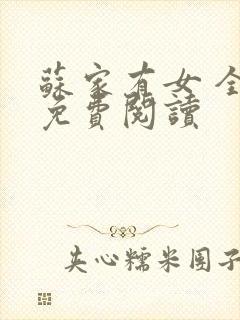 蘇家有女 全
免費閱讀
夹心糯米团子